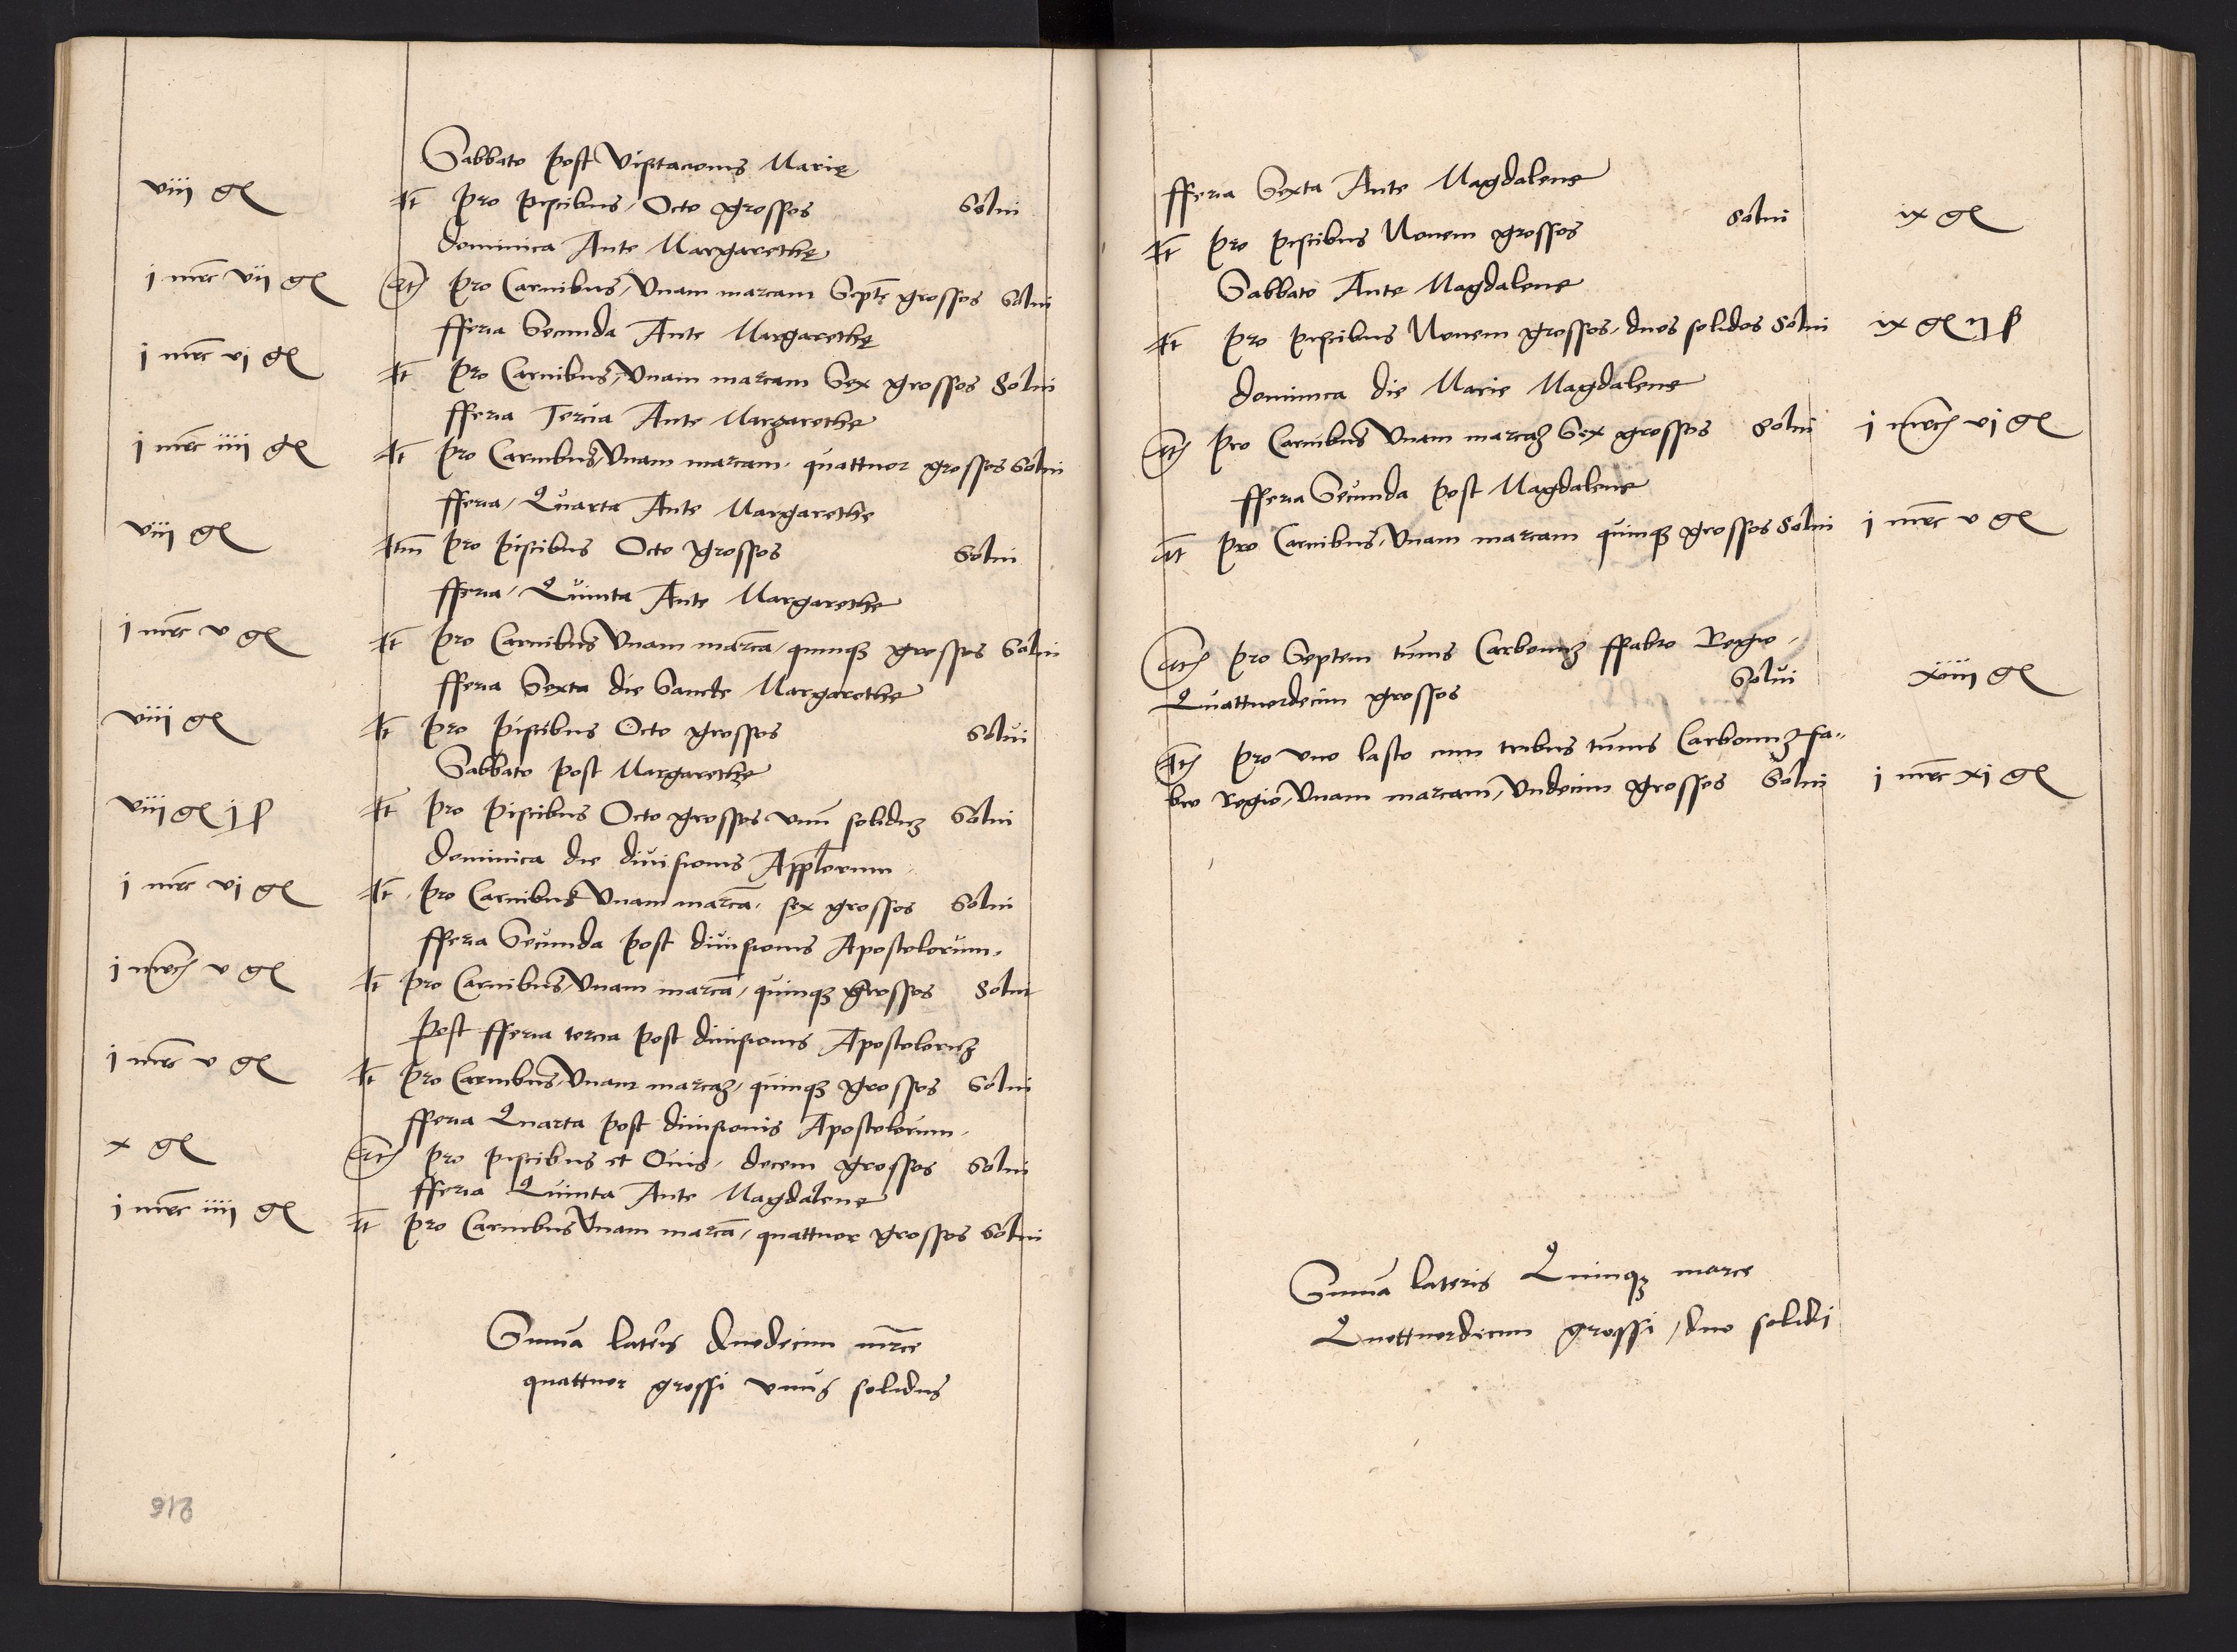 Sabbato post Visitacionis Marie
viij gr It pro piscibus Octo grossos Solui
Dominica Ante Margarethe
j mrc vij gr Itm pro Carnibus, Vnam marcam Septe grossos Solui
fferia Secunda Ante Margarethe
j mrc vj gr It pro Carnibus, Vnam marcam Sex grossos Solui
fferia Tercia Ante Margarethe
j mrc iiij gr It pro Carnibus, Vnam marcam, quattuor grossos Solui
fferia, Quarta Ante Margarethe
viij gr Itm pro piscibus Octo grossos Solui
fferia, Quinta Ante Margarethe
j mrc v gr It pro Carnibus Vnam marca, quinqȝ grossos Solui
fferia Sexta die Sancte Margarethe
viij gr It pro piscibus Octo grossos Solui
Sabbato post Margarethe
viij gr j ß It pro piscibus Octo grossos vnu soliduȝ Solui
Dominica die diuisionis Applorum
j mrc vj gr It pro Carnibus Vnam marca, sex grossos Solui
fferia Secunda post diuisionis Apostolorum
j mrc v gr It pro Carnibus, Vnam marca, quinqȝ grossos Solui
post fferia tercia post diuisionis Apostoloruȝ
j mrc v gr It pro Carnibus, Vnam marcaȝ, quinqȝ grossos Solui
fferia Quarta post diuisionis Apostolorum
x gr Itm pro piscibus et Ouis, decem grossos Solui
fferia Quinta Ante Magdalene
j mrc iiij gr It pro Carnibus Vnam marca, quattuor grossos Solui
Suma lateris duodecim mrce
quattuor grossi vnus solidus
218
fferia Sexta Ante Magdalene
It pro piscibus Nouem grossos Solui ix gr
Sabbato Ante Magdalene
It pro piscibus Nouem grossos, duos solidos Solui ix gr ij ß
dominica die Marie Magdalene
Itm pro Carnibus Vnam marcaȝ Sex grossos Solui j mrc vj gr
fferia Secunda post Magdalene
It pro Carnibus, Vnam marcam quinqȝ grossos Solui j mrc v gr
Itm pro Septem tunis Carbonuȝ ffabro Regio,
Quattuordecim grossos Solui xiiij gr
Itm pro vno lasto cum tribus tunis Carbonuȝ fa-
bro Regio, Vnam marcam, Vndecim grossos Solui j mrc xj gr
Suma lateris Quinqȝ marce
Quottuordecim grossi, duo solidi